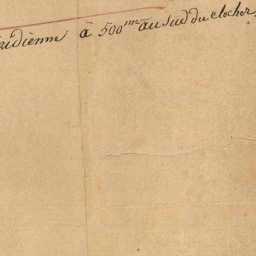 ridienne à 500m au sud du clocher